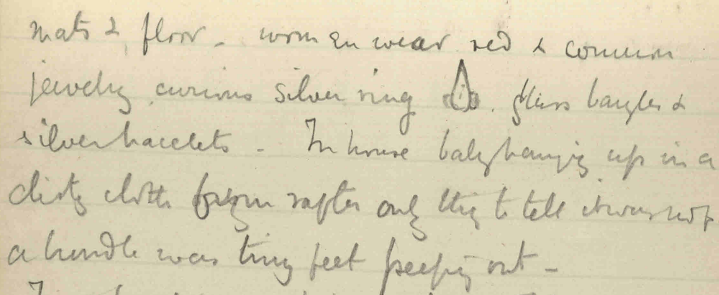 mats & floor - women wear red & common
jewelry curious silver ring . glass bangles &
silver bracelets - In house baby hanging up in a
dirty cloth from rafter only thing to tell it was not
a bundle was tiny feet peeping out -